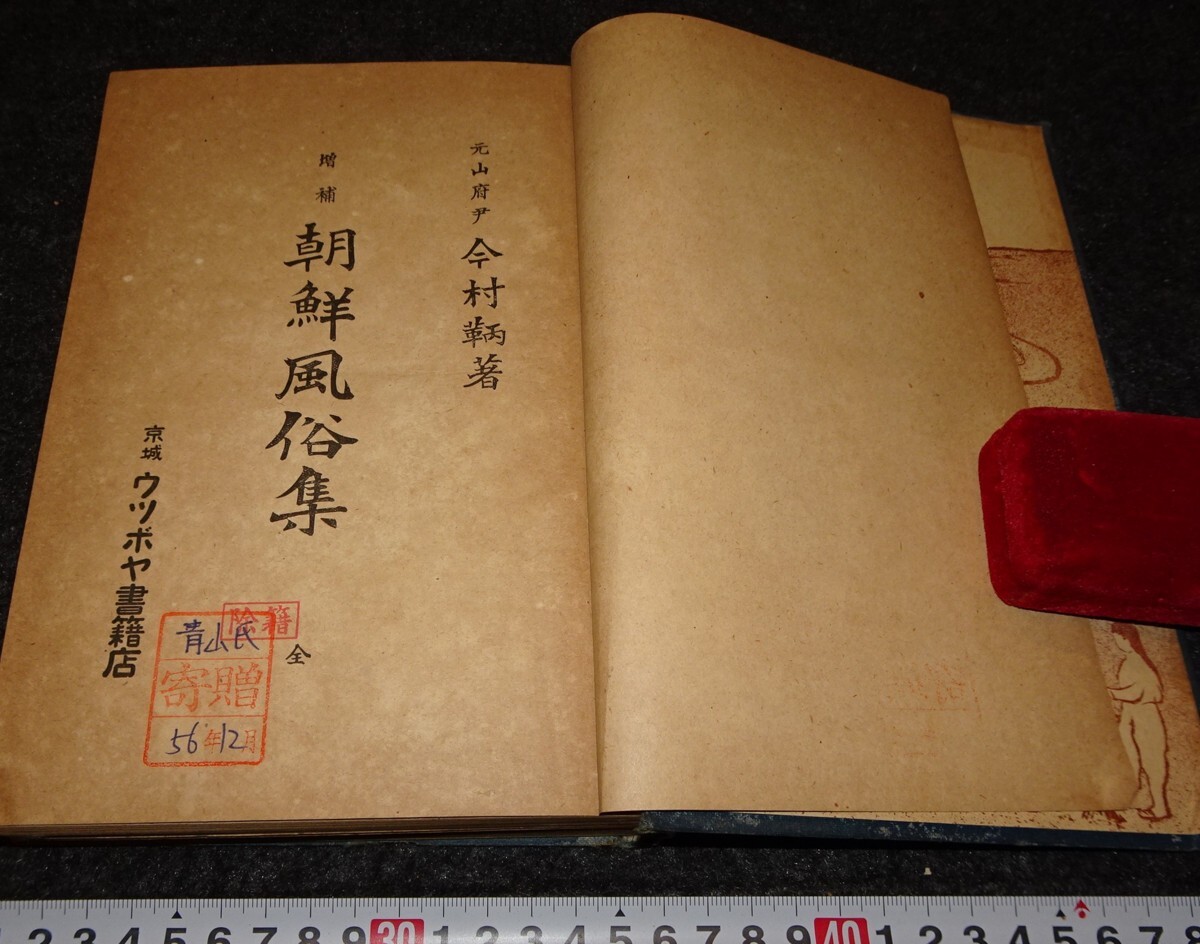 元山府尹 今村鞆著
増補 朝鮮風俗集 全
京城 ウツボヤ書籍店
除籍
青山氏
寄贈
56年12月
2 3 4 5 6 7 8 9 30 1 2 3 4 5 6 7 8 9 40 1 2 3 4 5 6 7